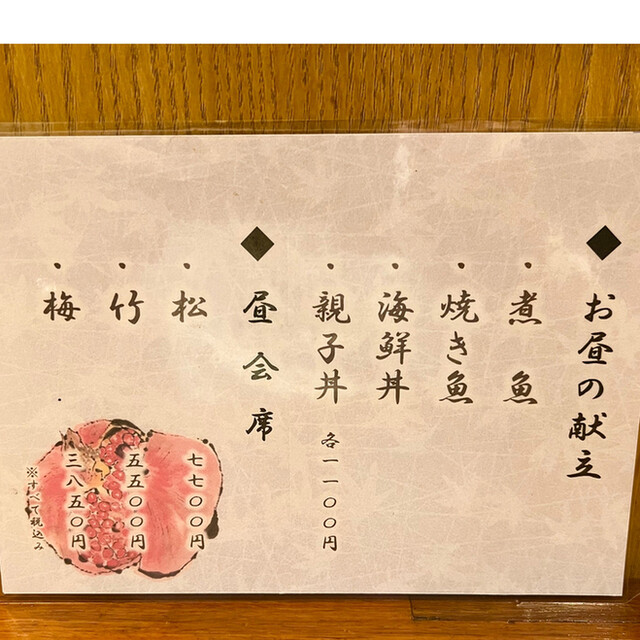 ◆お昼の献立
・煮魚
・焼き魚
・海鮮丼
・親子丼 各一一〇〇円
◆昼会席
・松 七七〇〇円
・竹 五五〇〇円
・梅 三八五〇円
※すべて税込み